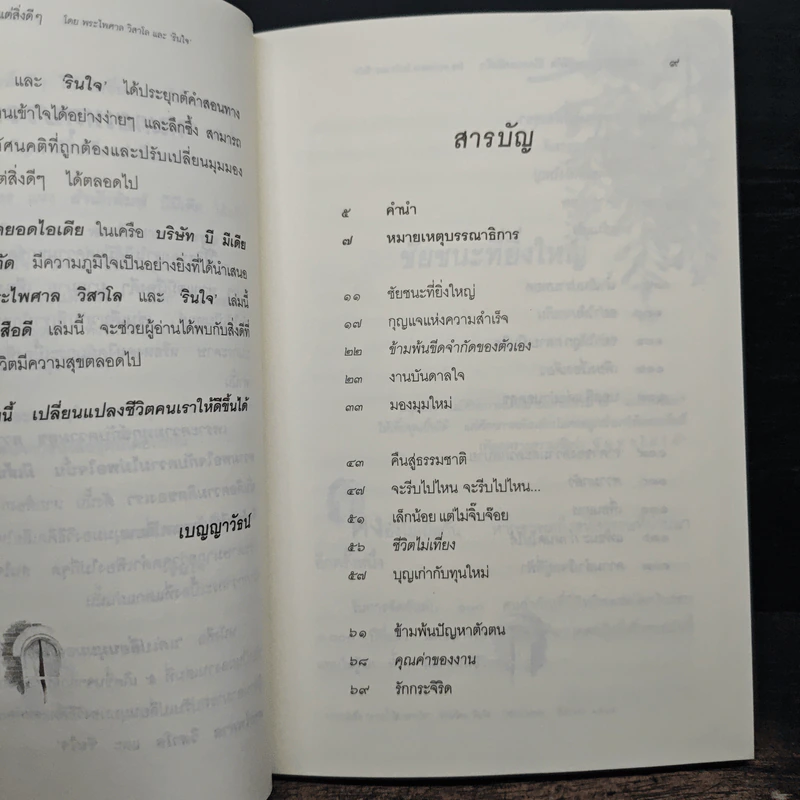 แต่สิ่งดีๆ โดย พระไพศาล วิสาโล และ 'รินใจ'
และ 'รินใจ' ได้ประยุกต์คำสอนทาง
านเข้าใจได้อย่างง่ายๆ และลึกซึ้ง สามารถ
ัศนคติที่ถูกต้องและปรับเปลี่ยนมุมมอง
แต่สิ่งดีๆ ได้ตลอดไป
ายอดไอเดีย ในเครือ บริษัท บี มีเดีย
กัด มีความภูมิใจเป็นอย่างยิ่งที่ได้นำเสนอ
พระไพศาล วิสาโล และ 'รินใจ' เล่มนี้
สือดี เล่มนี้ จะช่วยผู้อ่านได้พบกับสิ่งดีที่
ีวิตมีความสุขตลอดไป
นี้ เปลี่ยนแปลงชีวิตคนเราให้ดีขึ้นได้
เบญญาวัธน์
๙
สารบัญ
๕ คำนำ
๗ หมายเหตุบรรณาธิการ
๑๑ ชัยชนะที่ยิ่งใหญ่
๑๗ กุญแจแห่งความสำเร็จ
๒๒ ข้ามพ้นขีดจำกัดของตัวเอง
๒๓ งานบันดาลใจ
๓๓ มองมุมใหม่
๔๓ คืนสู่ธรรมชาติ
๔๗ จะรีบไปไหน จะรีบไปไหน...
๕๑ เล็กน้อย แต่ไม่จิ๊บจ๊อย
๕๖ ชีวิตไม่เที่ยง
๕๗ บุญเก่ากับทุนใหม่
๖๑ ข้ามพ้นปัญหาตัวตน
๖๘ คุณค่าของงาน
๖๙ รักกระจิริด